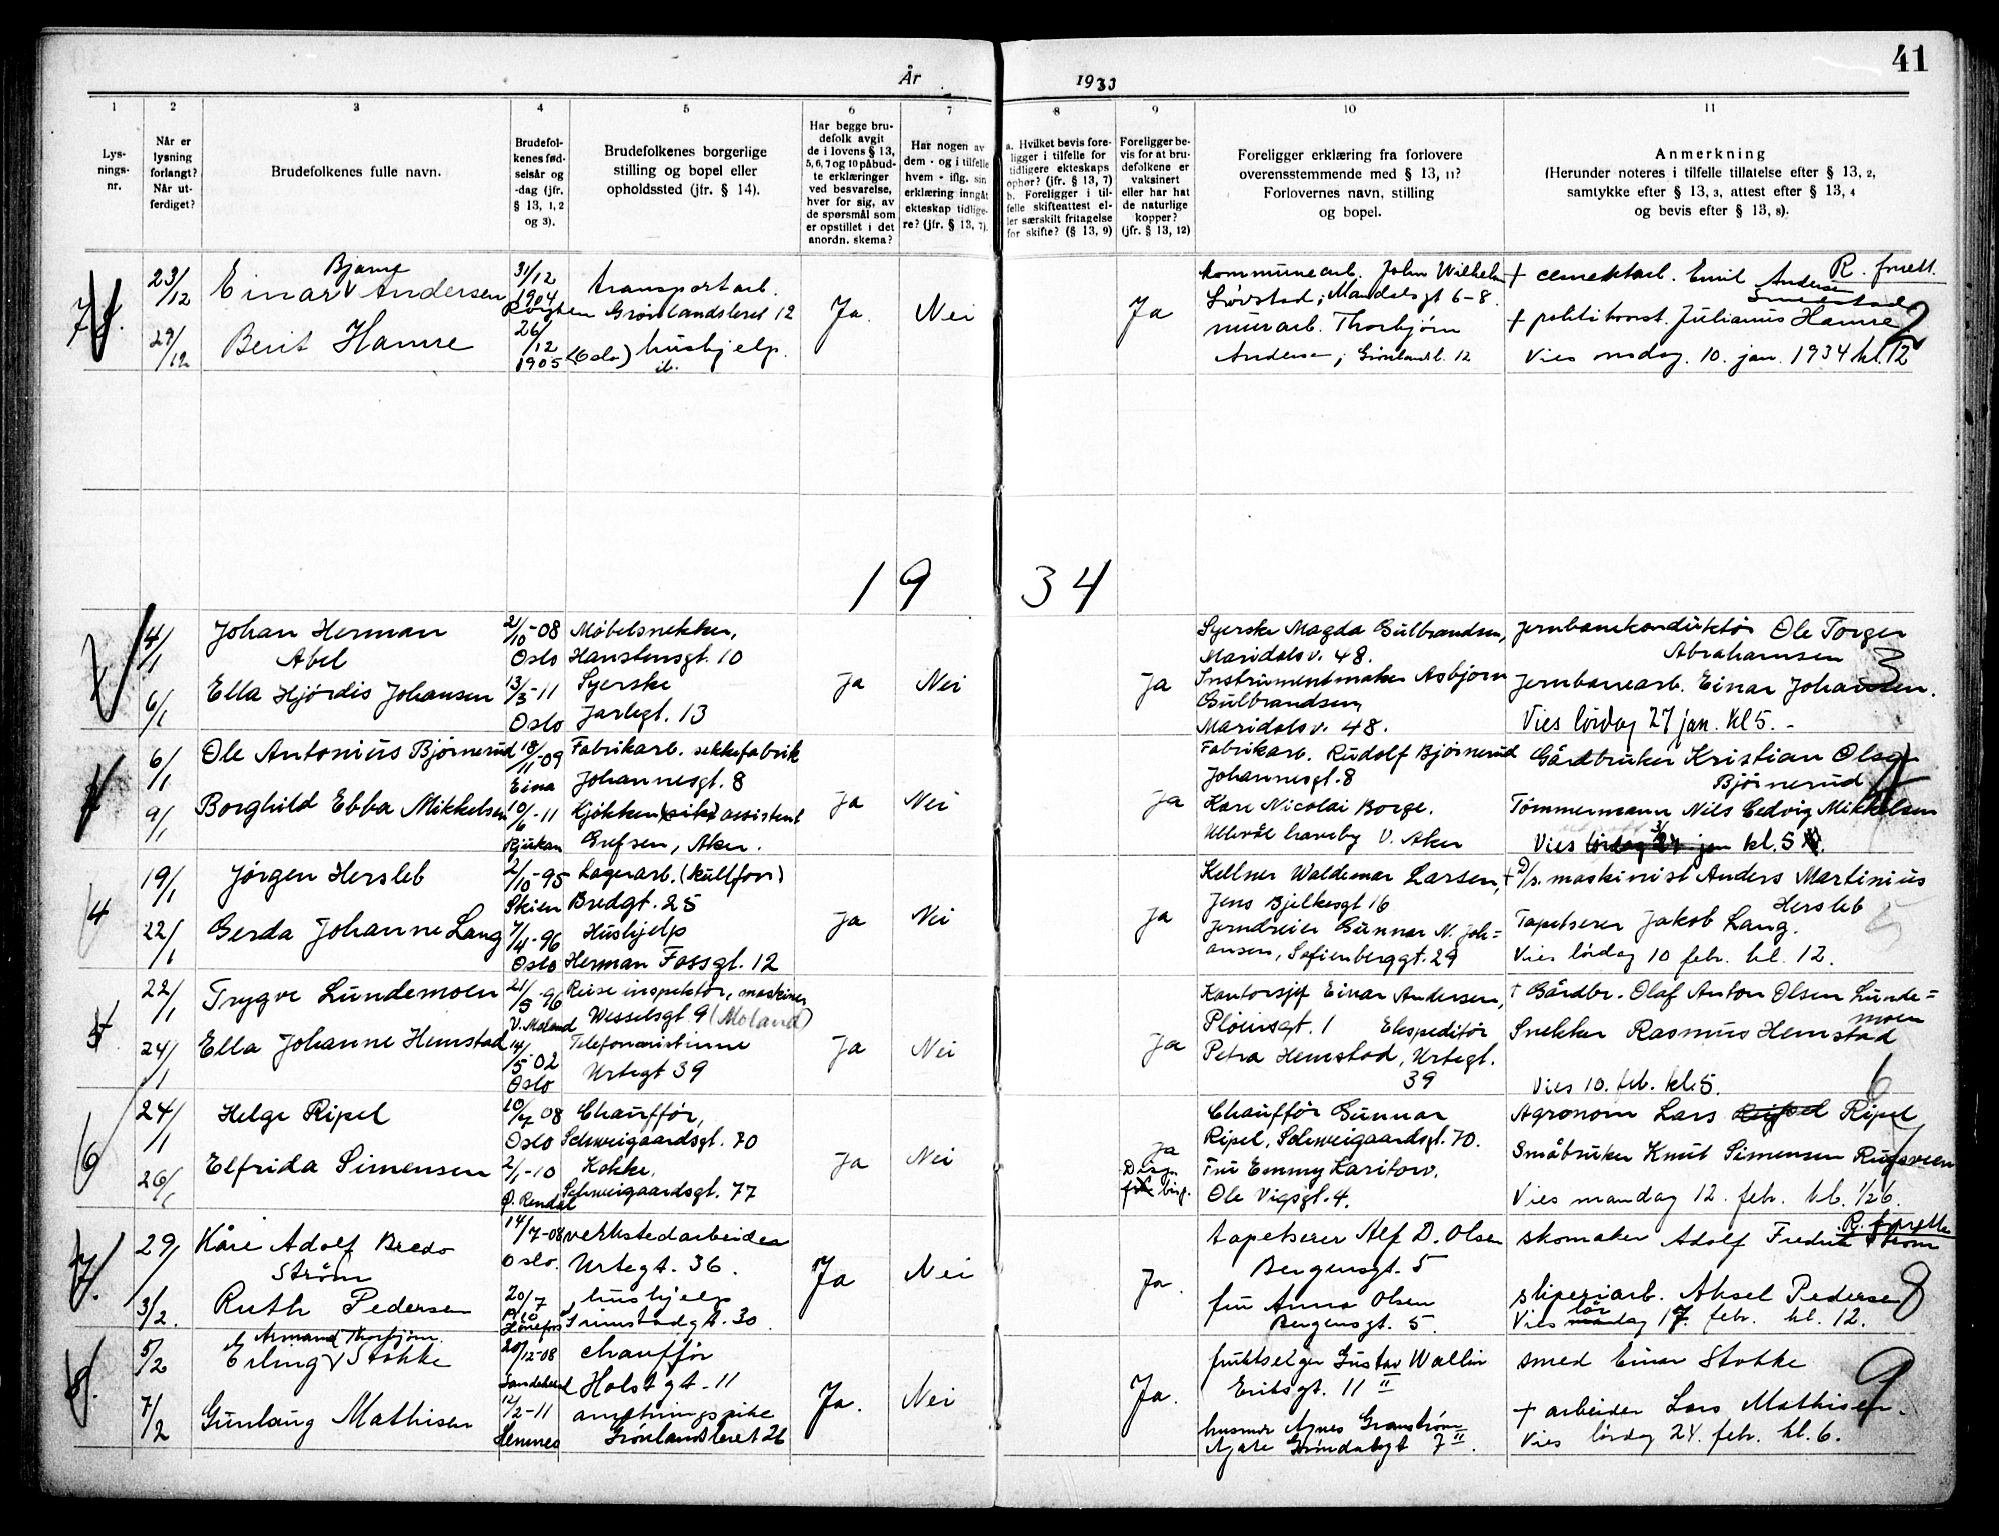 41
År 1933
1 2 3 4 5 6 7 8 9 10 11
Lys-
nings-
nr.
Når er
lysning
forlangt?
Når ut-
ferdiget?
Brudefolkenes fulle navn.
Brudefol-
kenes fød-
selsår og
-dag (jfr.
§ 13, 1, 2
og 3).
Brudefolkenes borgerlige
stilling og bopel eller
opholdssted (jfr. § 14).
Har begge bru-
defolk avgit
de i lovens § 13,
5, 6, 7 og 10 påbud-
te erklæringer
ved besvarelse,
hver for sig, av
de spørsmål som
er opstillet i det
anordn. skema?
Har nogen av
dem - og i tilfelle
hvem - iflg. sin
erklæring inngåt
ekteskap tidlige-
re? (jfr. § 13, 7).
a. Hvilket bevis fore-
ligger i tilfelle for
tidligere ekteskaps
ophør? (jfr. § 13, 7)
b. Foreligger i til-
felle skifteattest el-
ler særskilt fritagelse
for skifte? (§ 13, 9)
Foreligger be-
vis for at bru-
defolkene er
vaksinert
eller har hat
de naturlige
kopper?
(jfr. § 13, 12)
Foreligger erklæring fra forlovere
overensstemmende med § 13, 11?
Forlovernes navn, stilling
og bopel.
Anmerkning
(Herunder noteres i tilfelle tillatelse efter § 13, 2,
samtykke efter § 13, 3, attest efter § 13, 4
og bevis efter § 13, 8).
23/12
Bjarne
Einar Andersen
31/12
1904
transportarb.
Grønlandsleret 12
29/12
Berit Hamre
26/12
1905 (Oslo)
hushjelp.
ib.
Ja.
Nei
Ja
kommunearb. John Wilhelm
Løvstad; Mandalsgt 6-8.
murarb. Thorbjørn
Andersen; Grønlandsl. 12
R. forett.
+ cementarb. Emil Andersen
Smedstad
+ politikonst. Julianus Hamre
2
Vies onsdag. 10. jan. 1934 kl. 12
19 34
4/1
Johan Herman
Abel
21/10-08
Oslo
Møbelsnekker,
Hanstensgt. 10
6/1
Ella Hjørdis Johansen
13/3-11
Oslo
Syerske
Jarlegt. 13
Ja
Nei
Ja
Syerske Magda Gulbrandsen,
Maridalsv. 48.
Instrumentmaker Asbjørn
Gulbrandsen,
Maridalsv. 48.
Jernbanekonduktør Ole Torger
Abrahamsen
3
Jernbanearb. Einar Johansen.
Vies lørdag 27 jan. kl 5. -
6/1
Ole Antonius Bjørnerud
18/11-09
Eina
Fabrikarb. sekkefabrik
Johannesgt. 8
9/1
Borghild Ebba Mikkelsen
10/6-11
Rjukan
Kjøkken assistent
Grefsen, Aker.
Ja
Nei
Ja
Fabrikarb. Rudolf Bjørnerud
Johannesgt. 8
Kare Nicolai Borge.
Ullevål haveby V. Aker
Gårdbruker Kristian Olsen
Bjørnerud
Tømmermann Nils Hedvig Mikkelsen
Vies lørdag jan kl. 5
4
19/1
Jørgen Hersleb
2/10-95
Skien
Lagerarb. (kullforr)
Bredgt. 25
22/1
Gerda Johanne Lang
7/4-96
Oslo
Hushjelp
Herman Fossgt. 12
Ja
Nei
Ja
Kellner Waldemar Larsen,
Jens Bjelkesgt 16
Jerndreier Gunnar N. Joh=
ansen, Sofienberggt. 29
+ D/s. maskinist Anders Martinius
Hersleb
5
Tapetserer Jakob Lang.
Vies lørdag 10 febr. kl. 12.
5
22/1
Trygve Lundemoen
21/5-96
V. Moland
Reise inspektør, maskiner
Wesselsgt 9 (Moland)
24/1
Ella Johanne Hemstad
14/5-02
Oslo
Telefonistinne
Urtegt 39
Ja
Nei
Ja
Kontorsjef Einar Andersen,
Pløensgt. 1 Ekspeditør
Petra Hemstad, Urtegt.
39
+ Gårdbr. Olaf Anton Olsen Lunde=
moen
Snekker Rasmus Hemstad
6
Vies 10. feb. kl. 5.
6
24/1
Helge Ripel
10/7 08
Oslo
Chauffør,
Schweigaardsgt. 70
26/1
Elfrida Simensen
2/1-10
Ø. Rendal
Kokke,
Schweigaardsgt. 77
Ja
Nei
Ja
Chauffør Gunnar
Ripel, Schweigaardsgt. 70.
Fru Emmy Karitow.
Ole Vigsgt. 4.
Agronom Lars Ripel
7
Småbruker Knut Simensen Rugsveen
Vies mandag 12. febr. kl. 1/2 6.
7.
29/1
Kåre Adolf Bredo
Strøm
14/7-08
Oslo.
verkstedarbeider
Urtegt. 36.
3/2.
Ruth Pedersen
20/7
1910
Hønefoss
hushjelp
Grimstadgt. 30.
Ja
Nei
Ja.
tapetserer Alf D. Olsen
Bergensgt. 5
fru Anna Olsen
Bergensgt. 5.
R. forett.
skomaker Adolf Fredrik Strøm
sliperiarb. Aksel Pedersen
8
lør
Vies mandag 17. febr. kl. 12.
8.
5/2
Armand Thorbjørn.
Erling Stokke
20/12-08
chauffør
Holstgt. 11
7/2
Gunlaug Mathisen
12/2-11
Hemnes
anretningspike
Grønlandsleret 26
Ja.
Nei
Ja.
fruktselger Gustav Wallin
Eriksgt. 11 II
husmor Agnes Granstrøm
Agate Grøndahlsgt 7 II.
smed Einar Stokke
9
+ arbeider Lars Mathisen.
Vies lørdag 24. febr. kl. 6.